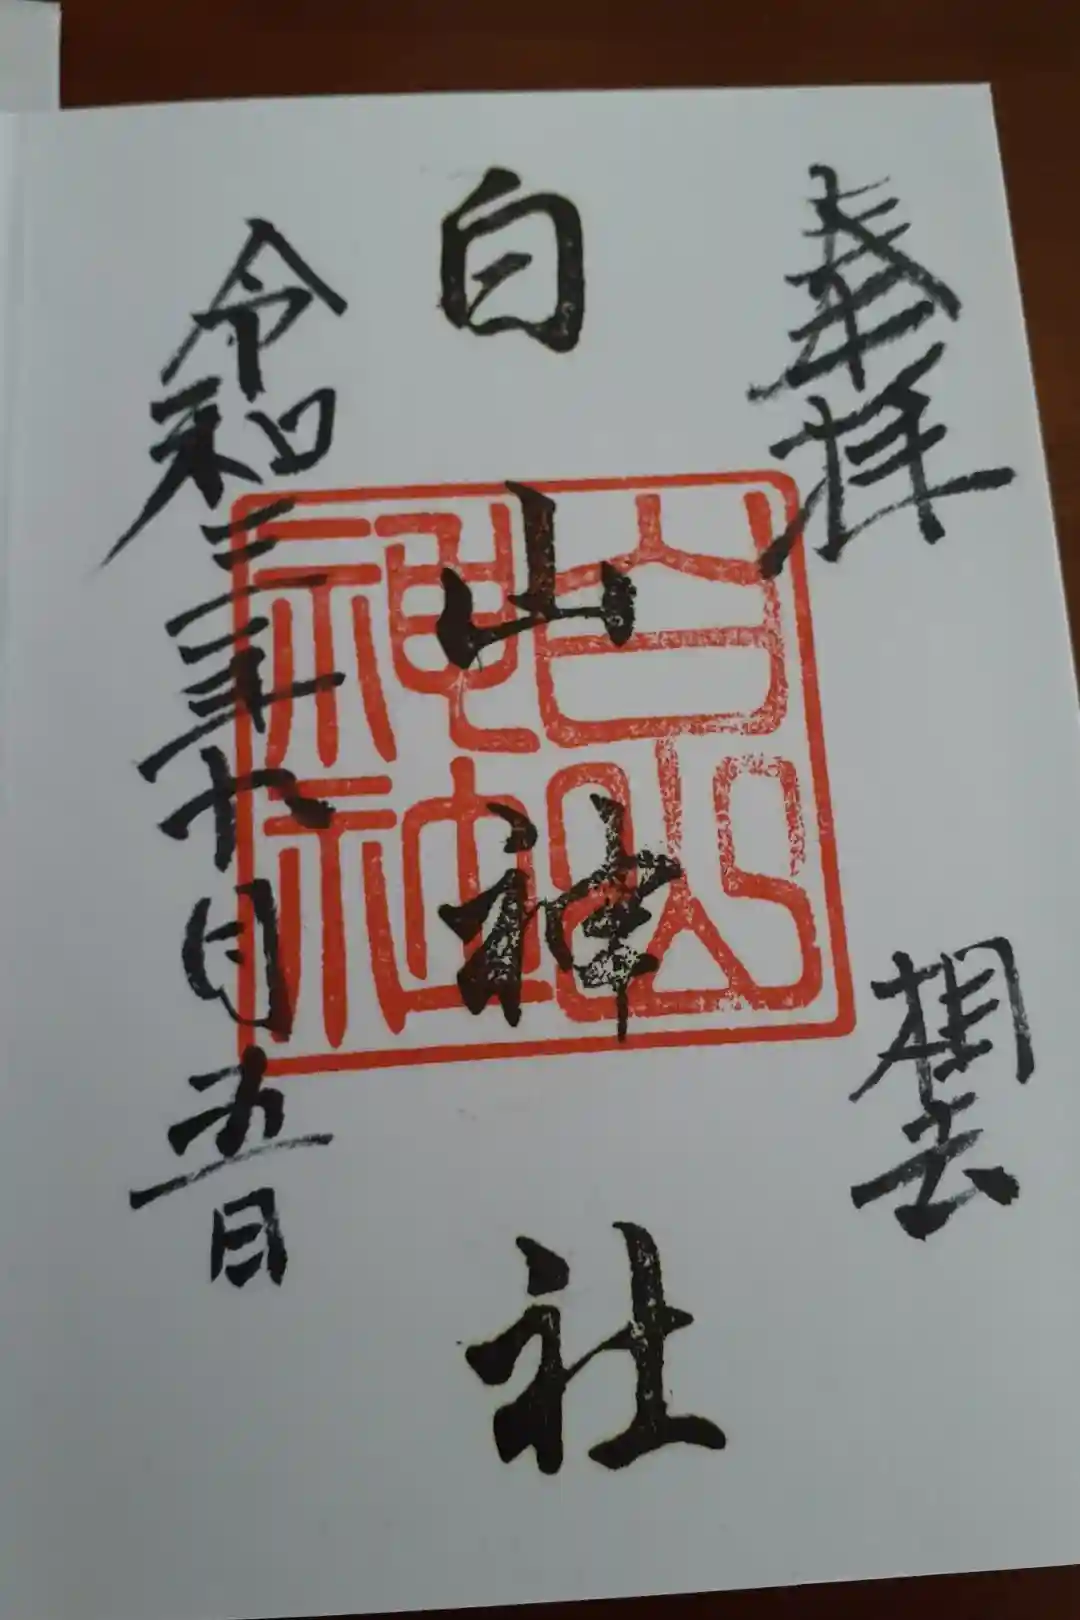 奉拝
相去
白山神社
令和三年十月五日
白山
神社